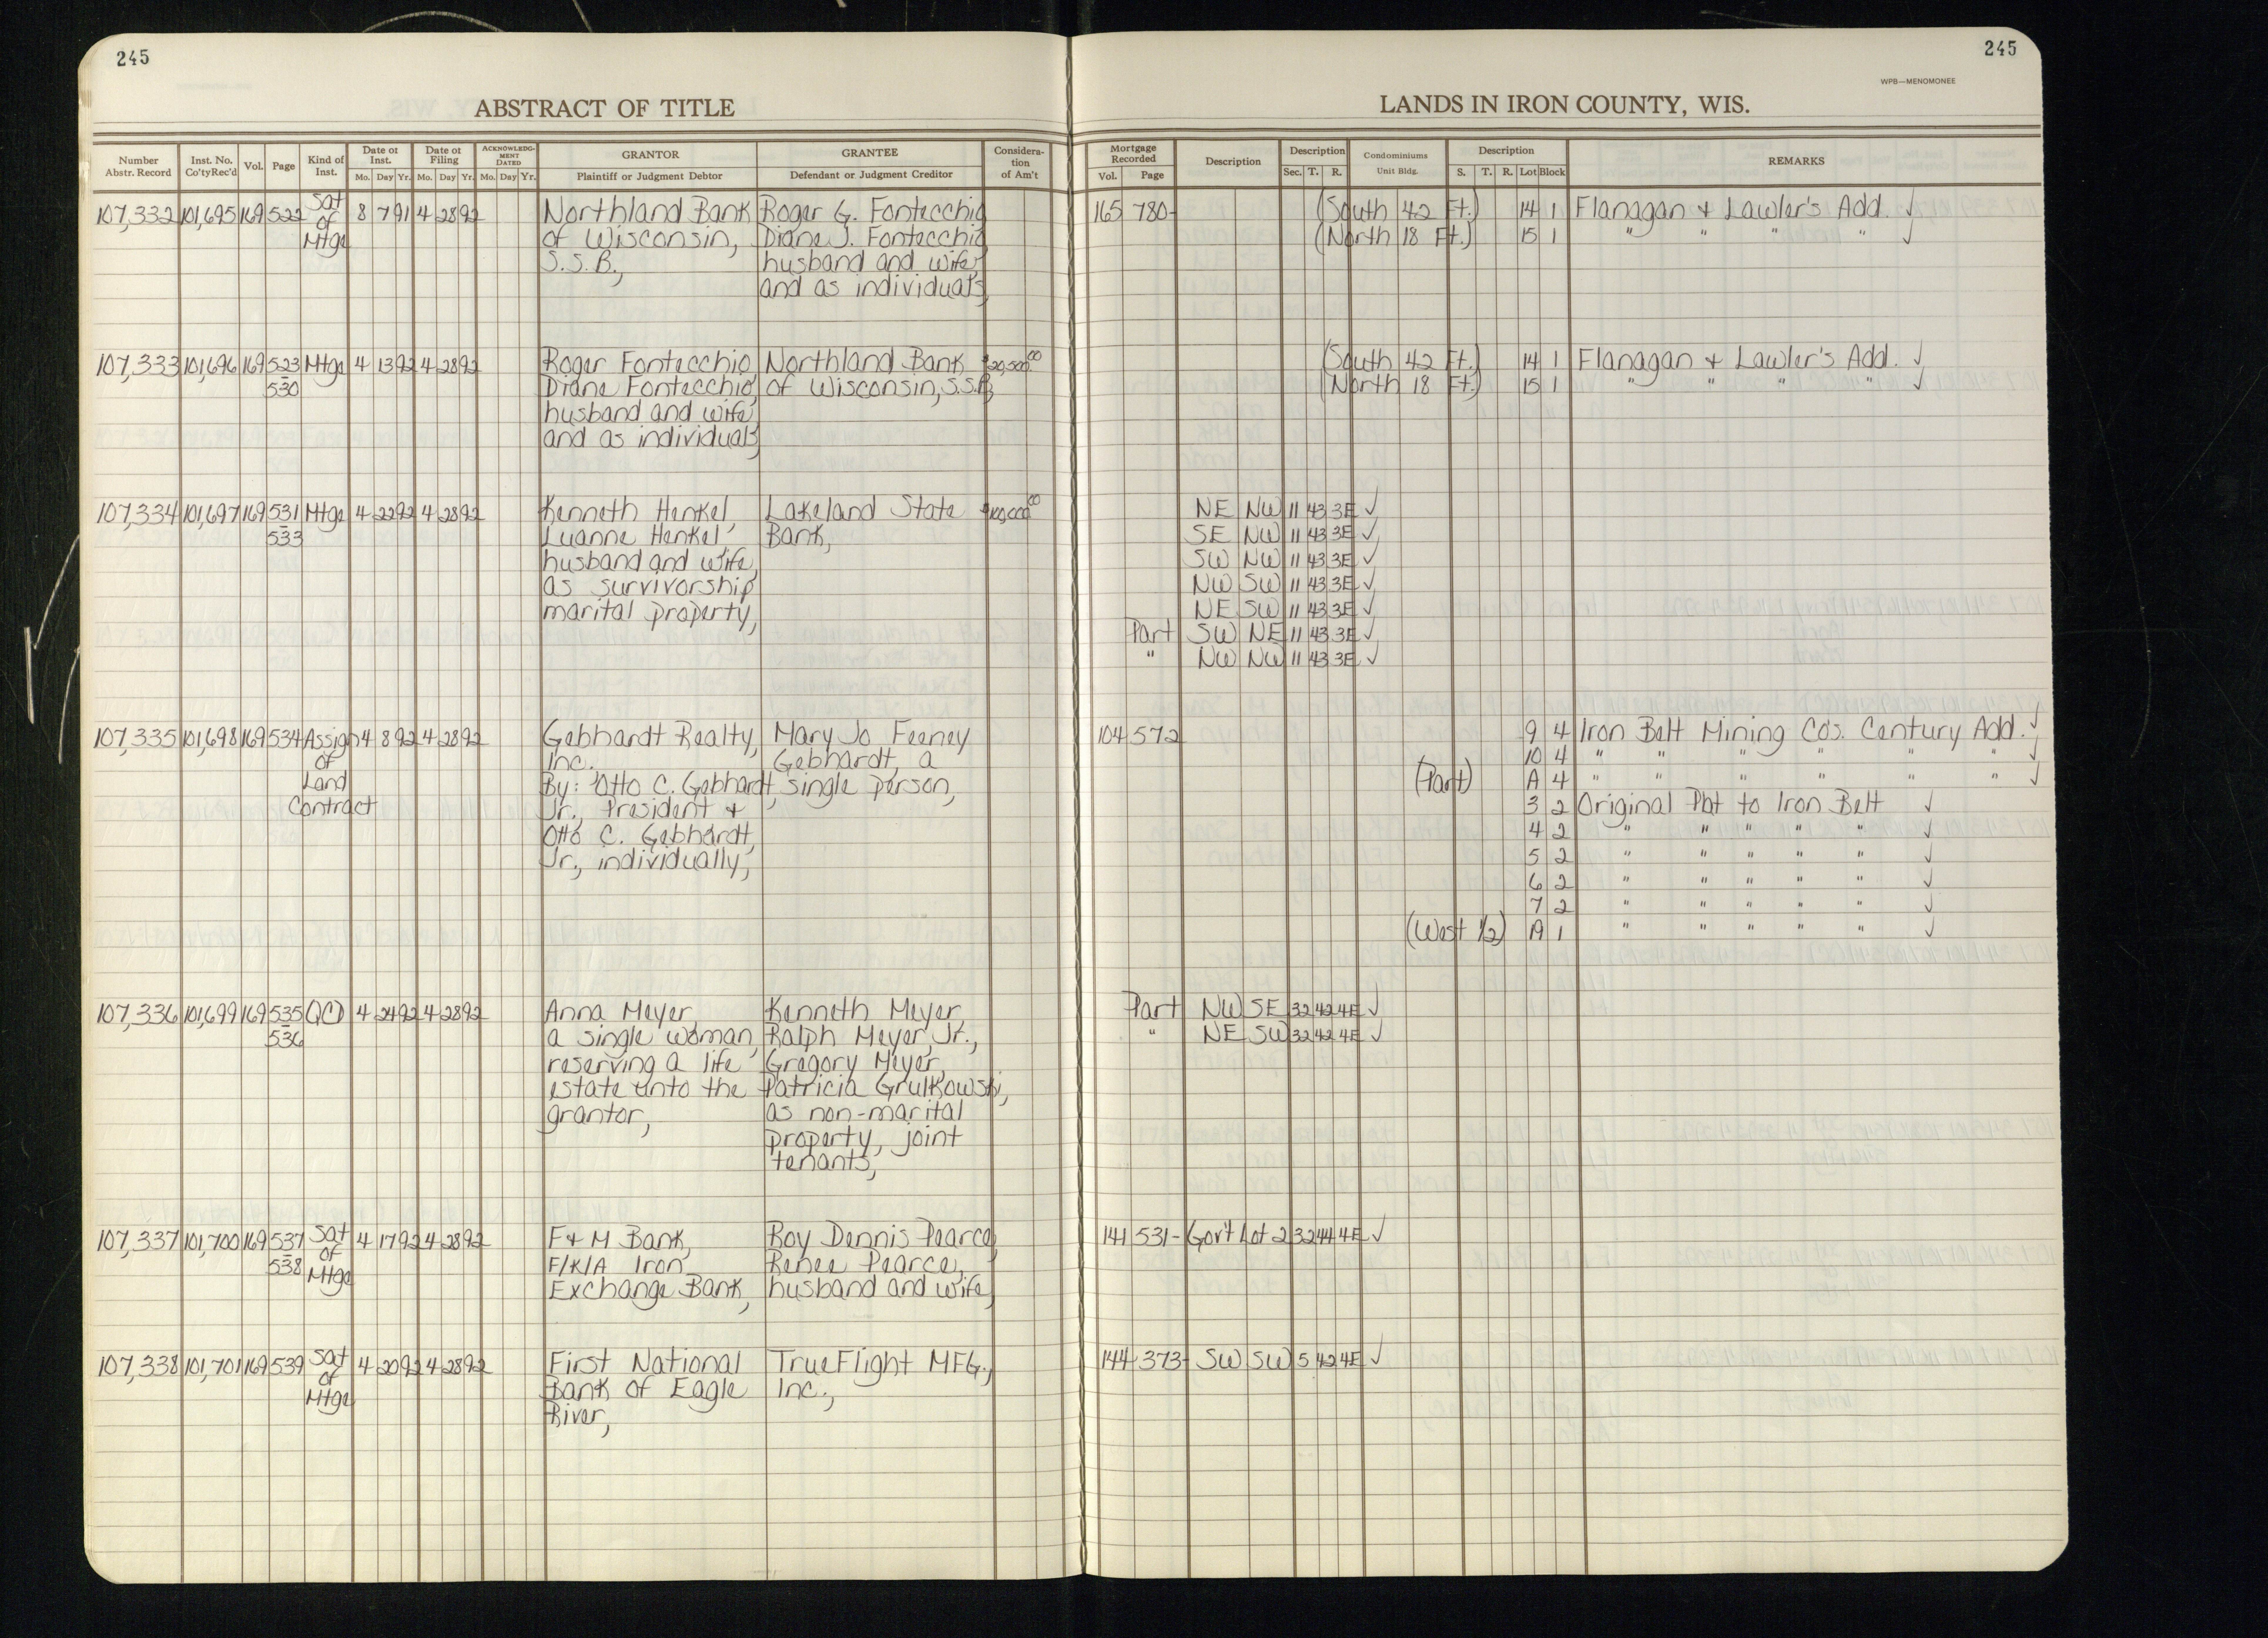 245
245
WPB—MENOMONEE
ABSTRACT OF TITLE
LANDS IN IRON COUNTY, WIS.
Number Abstr. Record | Inst. No. Co'ty Rec'd | Vol. | Page | Kind of Inst. | Date of Inst. Mo. Day Yr. | Date of Filing Mo. Day Yr. | ACKNOWLEDGMENT DATED Mo. Day Yr. | GRANTOR Plaintiff or Judgment Debtor | GRANTEE Defendant or Judgment Creditor | Consideration of Am't | Mortgage Recorded Vol. Page | Description | Description Sec. T. R. | Condominiums Unit Bldg. | Description S. T. R. Lot Block | REMARKS
107,332 101,695 169 522 Sat 8 7 91 4 28 92 Northland Bank Roger G. Fontecchio 165 780- (South 42 Ft.) 14 1 Flanagan + Lawler's Add. ✓
of of Wisconsin, Diane J. Fontecchio (North 18 Ft.) 15 1 " " " " ✓
Mtge S.S.B., husband and wife
and as individuals,
107,333 101,696 169 523 Mtge 4 13 92 4 28 92 Roger Fontecchio Northland Bank $20,500.00 (South 42 Ft.) 14 1 Flanagan + Lawler's Add. ✓
- 530 Diane Fontecchio, of Wisconsin, S.S.B, (North 18 Ft.) 15 1 " " " " ✓
husband and wife
and as individuals,
107,334 101,697 169 531 Mtge 4 22 92 4 28 92 Kenneth Henkel, Lakeland State $100,000.00 NE NW 11 43 3E ✓
- 533 Luanne Henkel Bank, SE NW 11 43 3E ✓
husband and wife, SW NW 11 43 3E ✓
as survivorship NW SW 11 43 3E ✓
marital property, NE SW 11 43 3E ✓
Part SW NE 11 43 3E ✓
" NW NW 11 43 3E ✓
107,335 101,698 169 534 Assign 4 8 92 4 28 92 Gebhardt Realty, Mary Jo Feeney 104 572 9 4 Iron Belt Mining Co's. Century Add. ✓
of Inc. Gebhardt, a 10 4 " " " " " " ✓
Land By: Otto C. Gebhardt, single person, (Part) A 4 " " " " " " ✓
Contract Jr., President + 3 2 Original Plat to Iron Belt ✓
Otto C. Gebhardt, 4 2 " " " " " ✓
Jr., individually, 5 2 " " " " " ✓
6 2 " " " " " ✓
7 2 " " " " " ✓
(West 1/2) A 1 " " " " " ✓
107,336 101,699 169 535 QCD 4 24 92 4 28 92 Anna Meyer, Kenneth Meyer, Part NW SE 32 42 4E ✓
- 536 a single woman, Ralph Meyer, Jr., " NE SW 32 42 4E ✓
reserving a life Gregory Meyer,
estate unto the Patricia Grulkowski,
grantor, as non-marital
property, joint
tenants,
107,337 101,700 169 537 Sat 4 17 92 4 28 92 F+M Bank, Roy Dennis Pearce, 141 531- Gov't Lot 2 32 44 4E ✓
- 538 of F/K/A Iron Renee Pearce,
Mtge Exchange Bank, husband and wife,
107,338 101,701 169 539 Sat 4 20 92 4 28 92 First National TrueFlight MFG., 144 373- SW SW 5 42 4E ✓
of Bank of Eagle Inc.,
Mtge River,